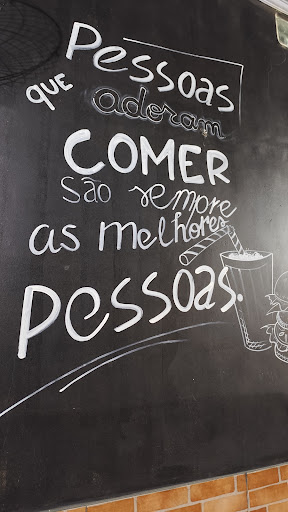 Pessoas
que adoram
COMER
são sempre
as melhores
Pessoas.